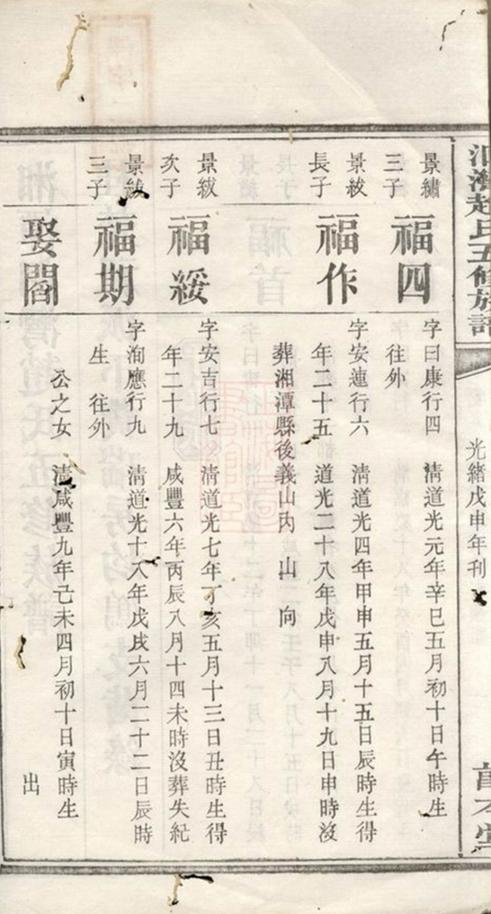 趙氏五修族譜
光緒戊申年刊
景繡
三子
福四
字曰康行四 清道光元年辛巳五月初十日午時生
往外
景紱
長子
福作
字安連行六 清道光四年甲申五月十五日辰時生得
年二十五 道光二十八年戊申八月十九日申時沒
葬湘潭縣後義山內 山 向
景紱
次子
福綏
字安吉行七 清道光七年丁亥五月十三日丑時生得
年二十九 咸豐六年丙辰八月十四未時沒葬失紀
景紱
三子
福期
字洵應行九 清道光十八年戊戌六月二十二日辰時
生 往外
娶閻
公之女 清咸豐九年己未四月初十日寅時生
出